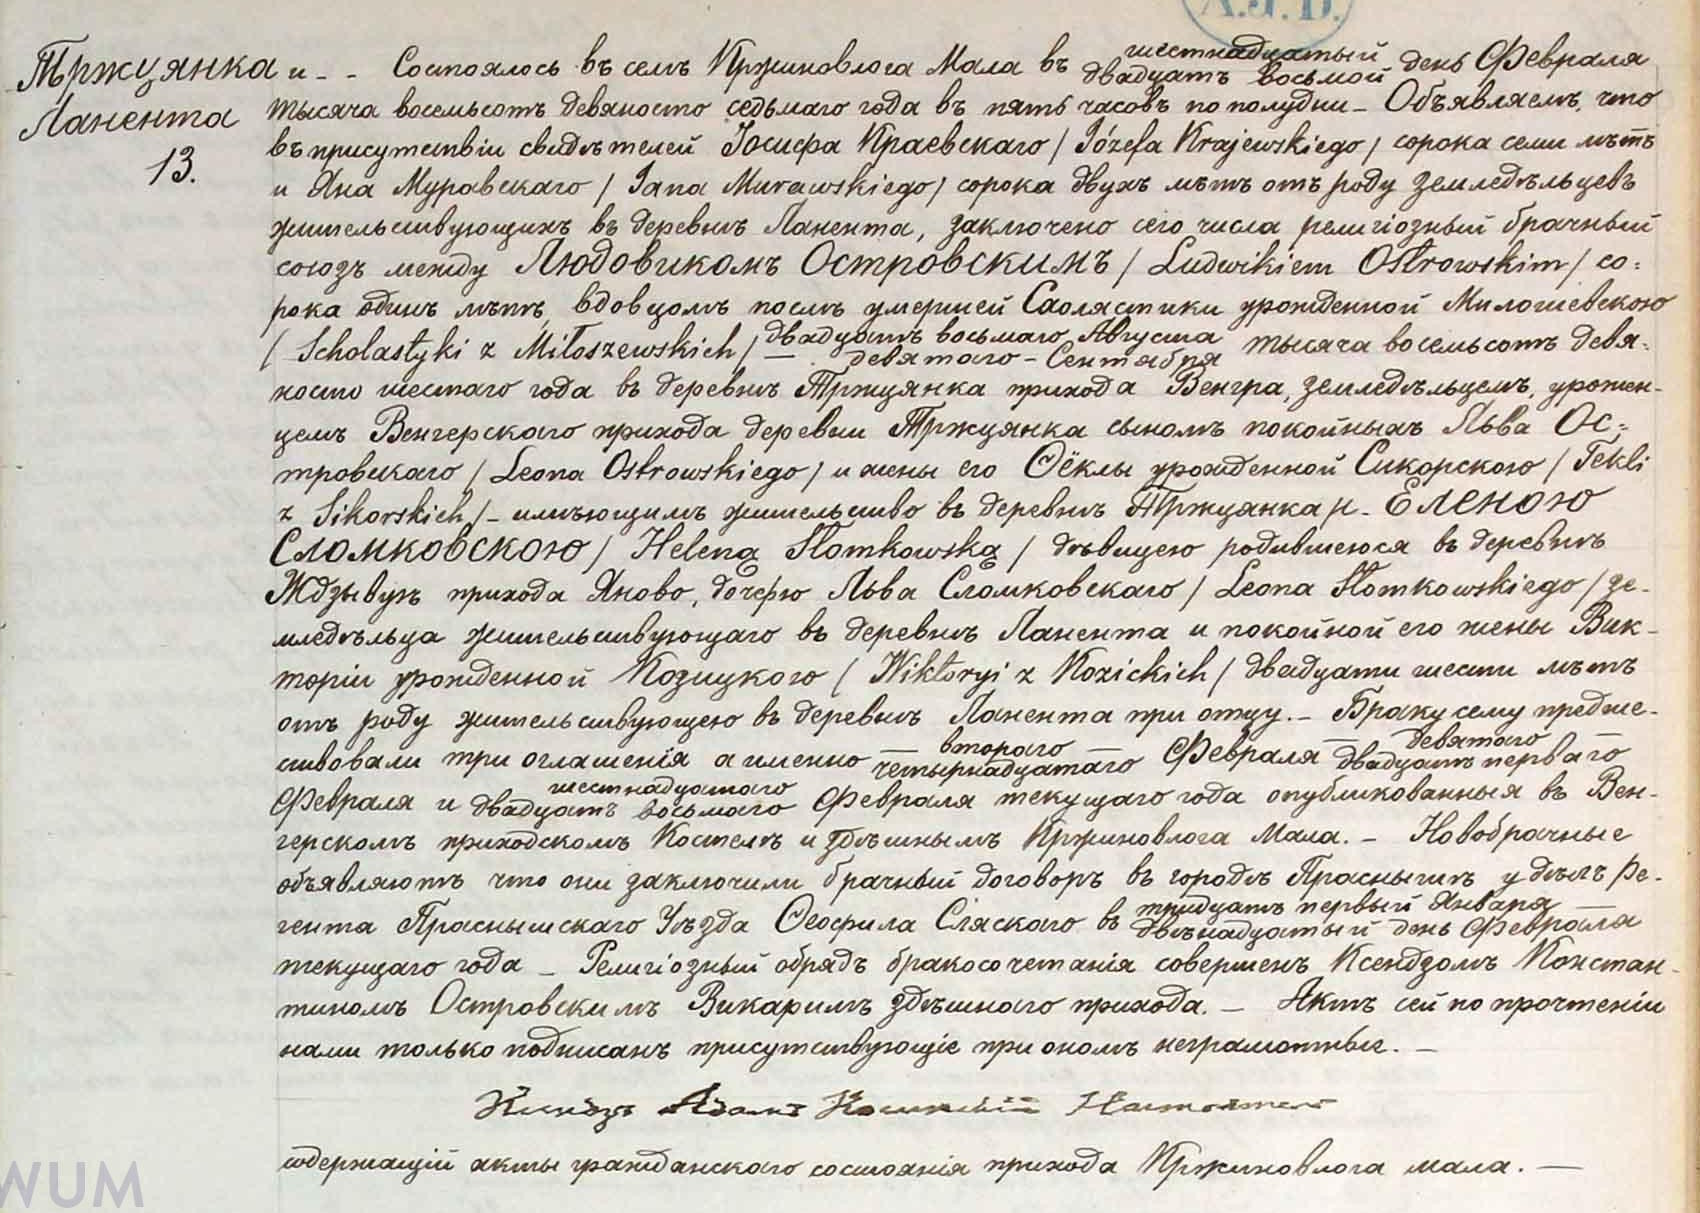 Тржцянка и - - Состоялось въ селѣ Кржиновлога Мала въ шестнадцатый / двадцать восьмой день Февраля
Ланента тысяча восемьсотъ девяносто седьмаго года въ пять часовъ по полудни - Объявляемъ, что
13. въ присутствіи свидѣтелей Іосифа Краевскаго / Józefa Krajewskiego / сорока семи лѣтъ
и Яна Муравскаго / Jana Murawskiego / сорока двухъ лѣтъ отъ роду земледѣльцевъ
жительствующихъ въ деревнѣ Ланента, заключено сего числа религіозный брачный
союзъ между Людовикомъ Островскимъ / Ludwikiem Ostrowskim / со=
рока одинъ лѣтъ, вдовцомъ послѣ умершей Схолястики урожденной Милошевскою
/ Scholastyki z Miłoszewskich / двадцать восьмаго Августа / девятаго - Сентября тысяча восемьсотъ девя=
носто шестаго года въ деревнѣ Тржцянка прихода Венгра, земледѣльцемъ, урожен-
цемъ Венгерскаго прихода деревни Тржцянка сыномъ покойныхъ Льва Ос=
тровскаго / Leona Ostrowskiego / и жены его Ѳёклы урожденной Сикорскою / Tekli
z Sikorskich / - имѣющимъ жительство въ деревнѣ Тржцянка и - Еленою
Сломковскою / Heleną Słomkowską / дѣвицею родившеюся въ деревнѣ
Ждзывуй прихода Яново, дочерю Льва Сломковскаго / Leona Słomkowskiego / зе-
мледѣльца жительствующаго въ деревнѣ Ланента и покойной его жены Вик-
торіи урожденной Козицкого / Wiktoryi z Kozickich / двадцати шести лѣтъ
отъ роду жительствующею въ деревнѣ Ланента при отцу. - Браку сему предше-
ствовали три оглашенія а именно - втораго / четырнадцатаго Февраля - девятаго / двадцать перваго
Февраля и шестнадцатаго / двадцать восьмаго Февраля текущаго года опубликованныя въ Вен-
герскомъ приходскомъ Костелѣ и здѣшнымъ Кржиновлога Мала. - Новобрачные
объявляютъ что они заключили брачный договоръ въ городѣ Праснышѣ у дѣлъ Ре-
гента Праснышскаго Уѣзда Ѳеофила Сляскаго въ тридцать первый Января / двѣнадцатый день Февраля
текущаго года - Религіозный обрядъ бракосочетанія совершенъ Ксендзомъ Констан-
тиномъ Островскимъ Викаримъ здѣшнаго прихода. - Актъ сей по прочтеніи
нами только подписанъ присутствующіе при ономъ неграмотные. -
Ксендзъ Адамъ Настоятель
содержащій акты гражданскаго состоянія прихода Кржиновлога мала. -
WUM